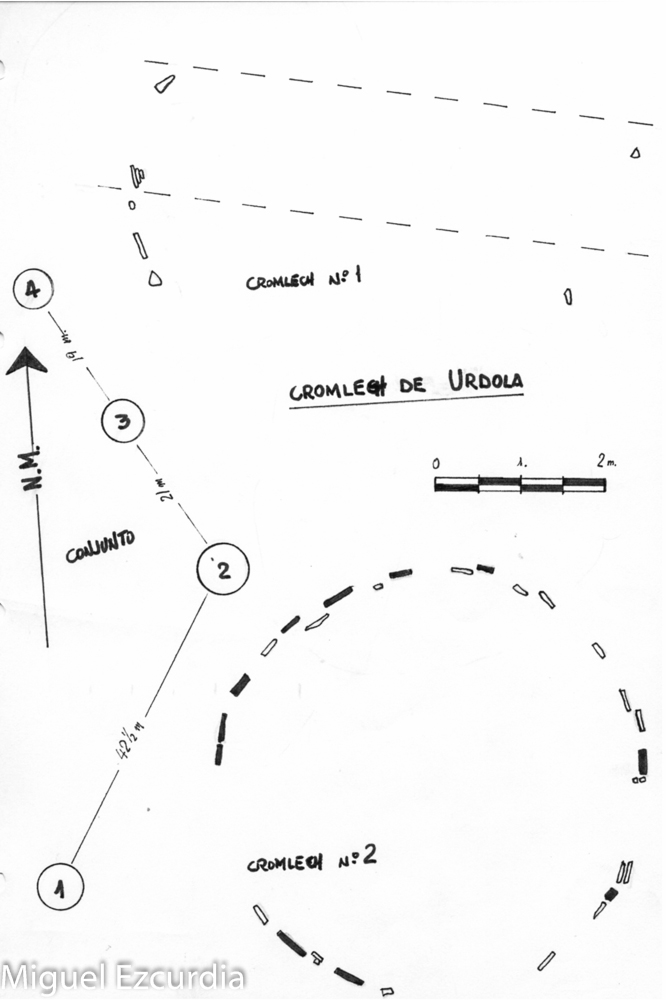 CROMLECH Nº 1
4
19 m.
CROMLECH DE URDOLA
3
N.M.
0 1. 2 m.
21 m
CONJUNTO
2
42 ½ m
CROMLECH Nº 2
1
Miguel Ezcurdia